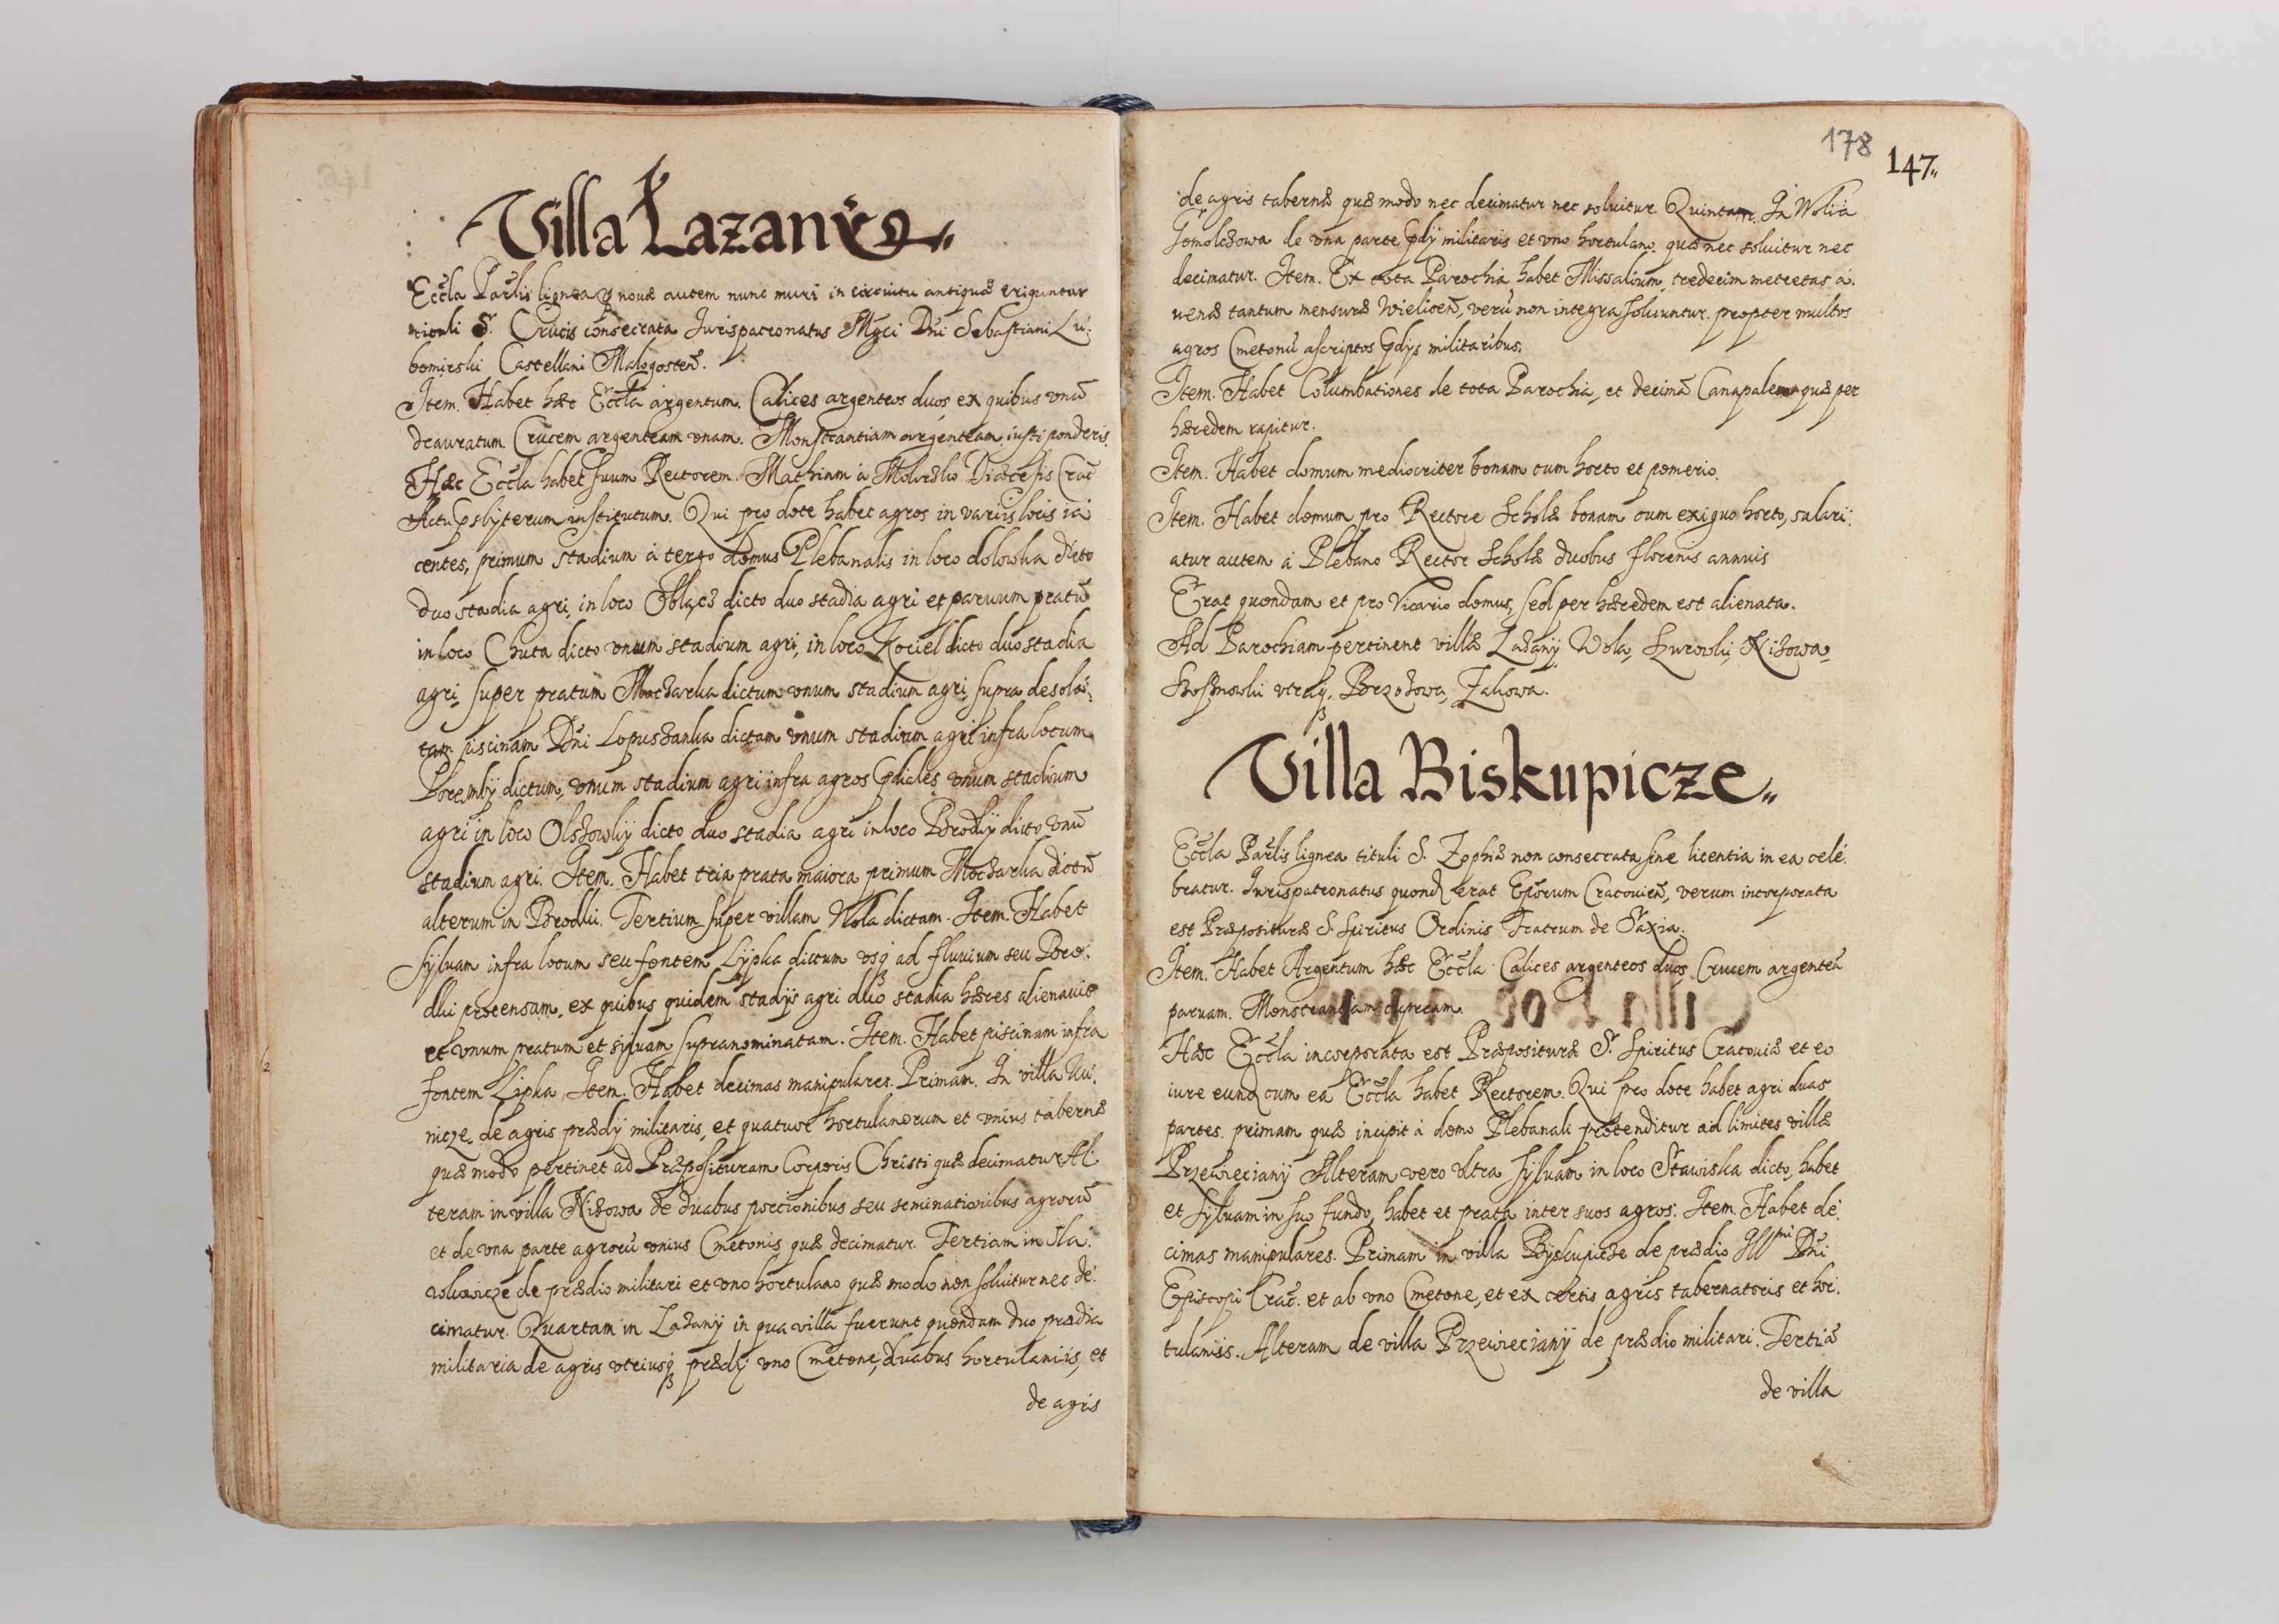 Villa Łazany
Eccła Parłis lignea novæ autem nunc muri in circuitu antiquæ eriguntur
tituli S. Crucis consecrata Jurispatronatus Mgci Dni Sebastiani Lu-
bomirski Castellani Malogosteñ.
Item. Habet hæc Eccła argentum. Calices argenteos duos ex quibus unū
deauratum Crucem argenteam unam. Monstrantiam argenteam iusti ponderis.
Hæc Eccła habet suum Rectorem. Mathiam à Diœcesis Crac̃
Actu Pr̃sbyterum institutum. Qui pro dote habet agros in variis locis ia
centes, primum stadium à tergo domus Plebanalis in loco dolowka dicto
duo stadia agri, in loco Obłącz dicto duo stadia agri et parvum pratū
in loco Chuta dicto unum stadium agri, in loco Kociel dicto duo stadia
agri, super pratum Moczarka dictum unum stadium agri, supra desola-
tam piscinam Dñi Lopuszanka dictam unum stadium agri infra locum
Poremby dictum, unum stadium agri infra agros P̃diales unum stadium
agri in loco Olszowky dicto duo stadia agri in loco Brodky dicto unū
stadium agri. Item. Habet tria prata maiora primum Moczarka dictū
alterum in Brodki. Tertium super villam Wola dictam. Item. Habet
sylvam infra locum seu fontem Lypka dictum usq; ad fluvium seu Bro-
dki protensam, ex quibus quidem stadijs agri duo stadia hæres alienavit
et unum pratum et sylvam supranominatam. Item. Habet piscinam infra
fontem Lipka Item. Habet decimas manipulares. Primam. In villa
nicze de agris prædij militaris, et quatuor hortulanorum et unius tabernæ
quæ modo pertinet ad Præposituram Corporis Christi quæ decimatur Al-
teram in villa Nizowa de duabus portionibus seu seminationibus agrorū
et de una parte agrorū unius Cmetonis quæ decimatur. Tertiam in Sła-
wkowicze de prædio militari et uno hortulano quæ modo non solvitur nec de-
cimatur. Quartam in Łazany in qua villa fuerunt quondam duo prædia
militaria de agris utriusq; prædij uno Cmetone, duabus hortulaniis, et
de agris
178
147.
de agris tabernæ quæ modo nec decimatur nec solvitur. Quintam. In Wolia
de una parte P̃dij militaris et uno hortulano. quæ nec solvitur nec
decimatur. Item. Ex tota Parochia habet Missalium, tredecim metretas a-
venæ tantum mensuræ Wielicen̄, verū non integra solvuntur. propter multos
agros Cmetonū ascriptos P̃dijs militaribus.
Item. Habet Columbationes de tota Parochia, et decimā Canapalem quæ per
hæredem rapitur.
Item. Habet domum mediocriter bonam cum horto et pomerio.
Item. Habet domum pro Rectore Scholæ bonam cum exiguo horto, salari-
atur autem à Plebano Rector Scholæ duobus florenis annuis
Erat quondam et pro Vicario domus, sed per hæredem est alienata.
Ad Parochiam pertinent villæ Łazany Wola, Surowki, Nizowa,
utraq;, Brzozowa, Zakowa.
Villa Biskupicze
Eccła Parłis lignea tituli S. Zophiæ non consecrata sine licentia in ea cele-
bratur. Jurispatronatus quond erat Ep̃orum Cracovieñ, verum incorporata
est Præpositurae S. Spiritus Ordinis Fratrum de Saxia.
Item. Habet Argentum hæc Eccła Calices argenteos duos, Crucem argenteā
parvam. Monstrantiam cupream.
Hæc Eccła incorporata est Præposituræ S. Spiritus Cracoviæ et eo
iure eund cum ea Eccła habet Rectorem. Qui pro dote habet agri duas
partes. primam quæ incipit à domo Plebanali protenditur ad limites villæ
Przewieciany Alteram vero ultra sylvam in loco Stawiska dicto, habet
et sylvam in suo fundo, habet et prata inter suos agros. Item. Habet de-
cimas manipulares. Primam in villa Byskupicze de prædio Illmi Dñi
Episcopi Crac̃. et ab uno Cmetone, et ex certis agris tabernatoris et hor-
tulaniis. Alteram de villa Przewieciany de prædio militari. Tertiā
de villa